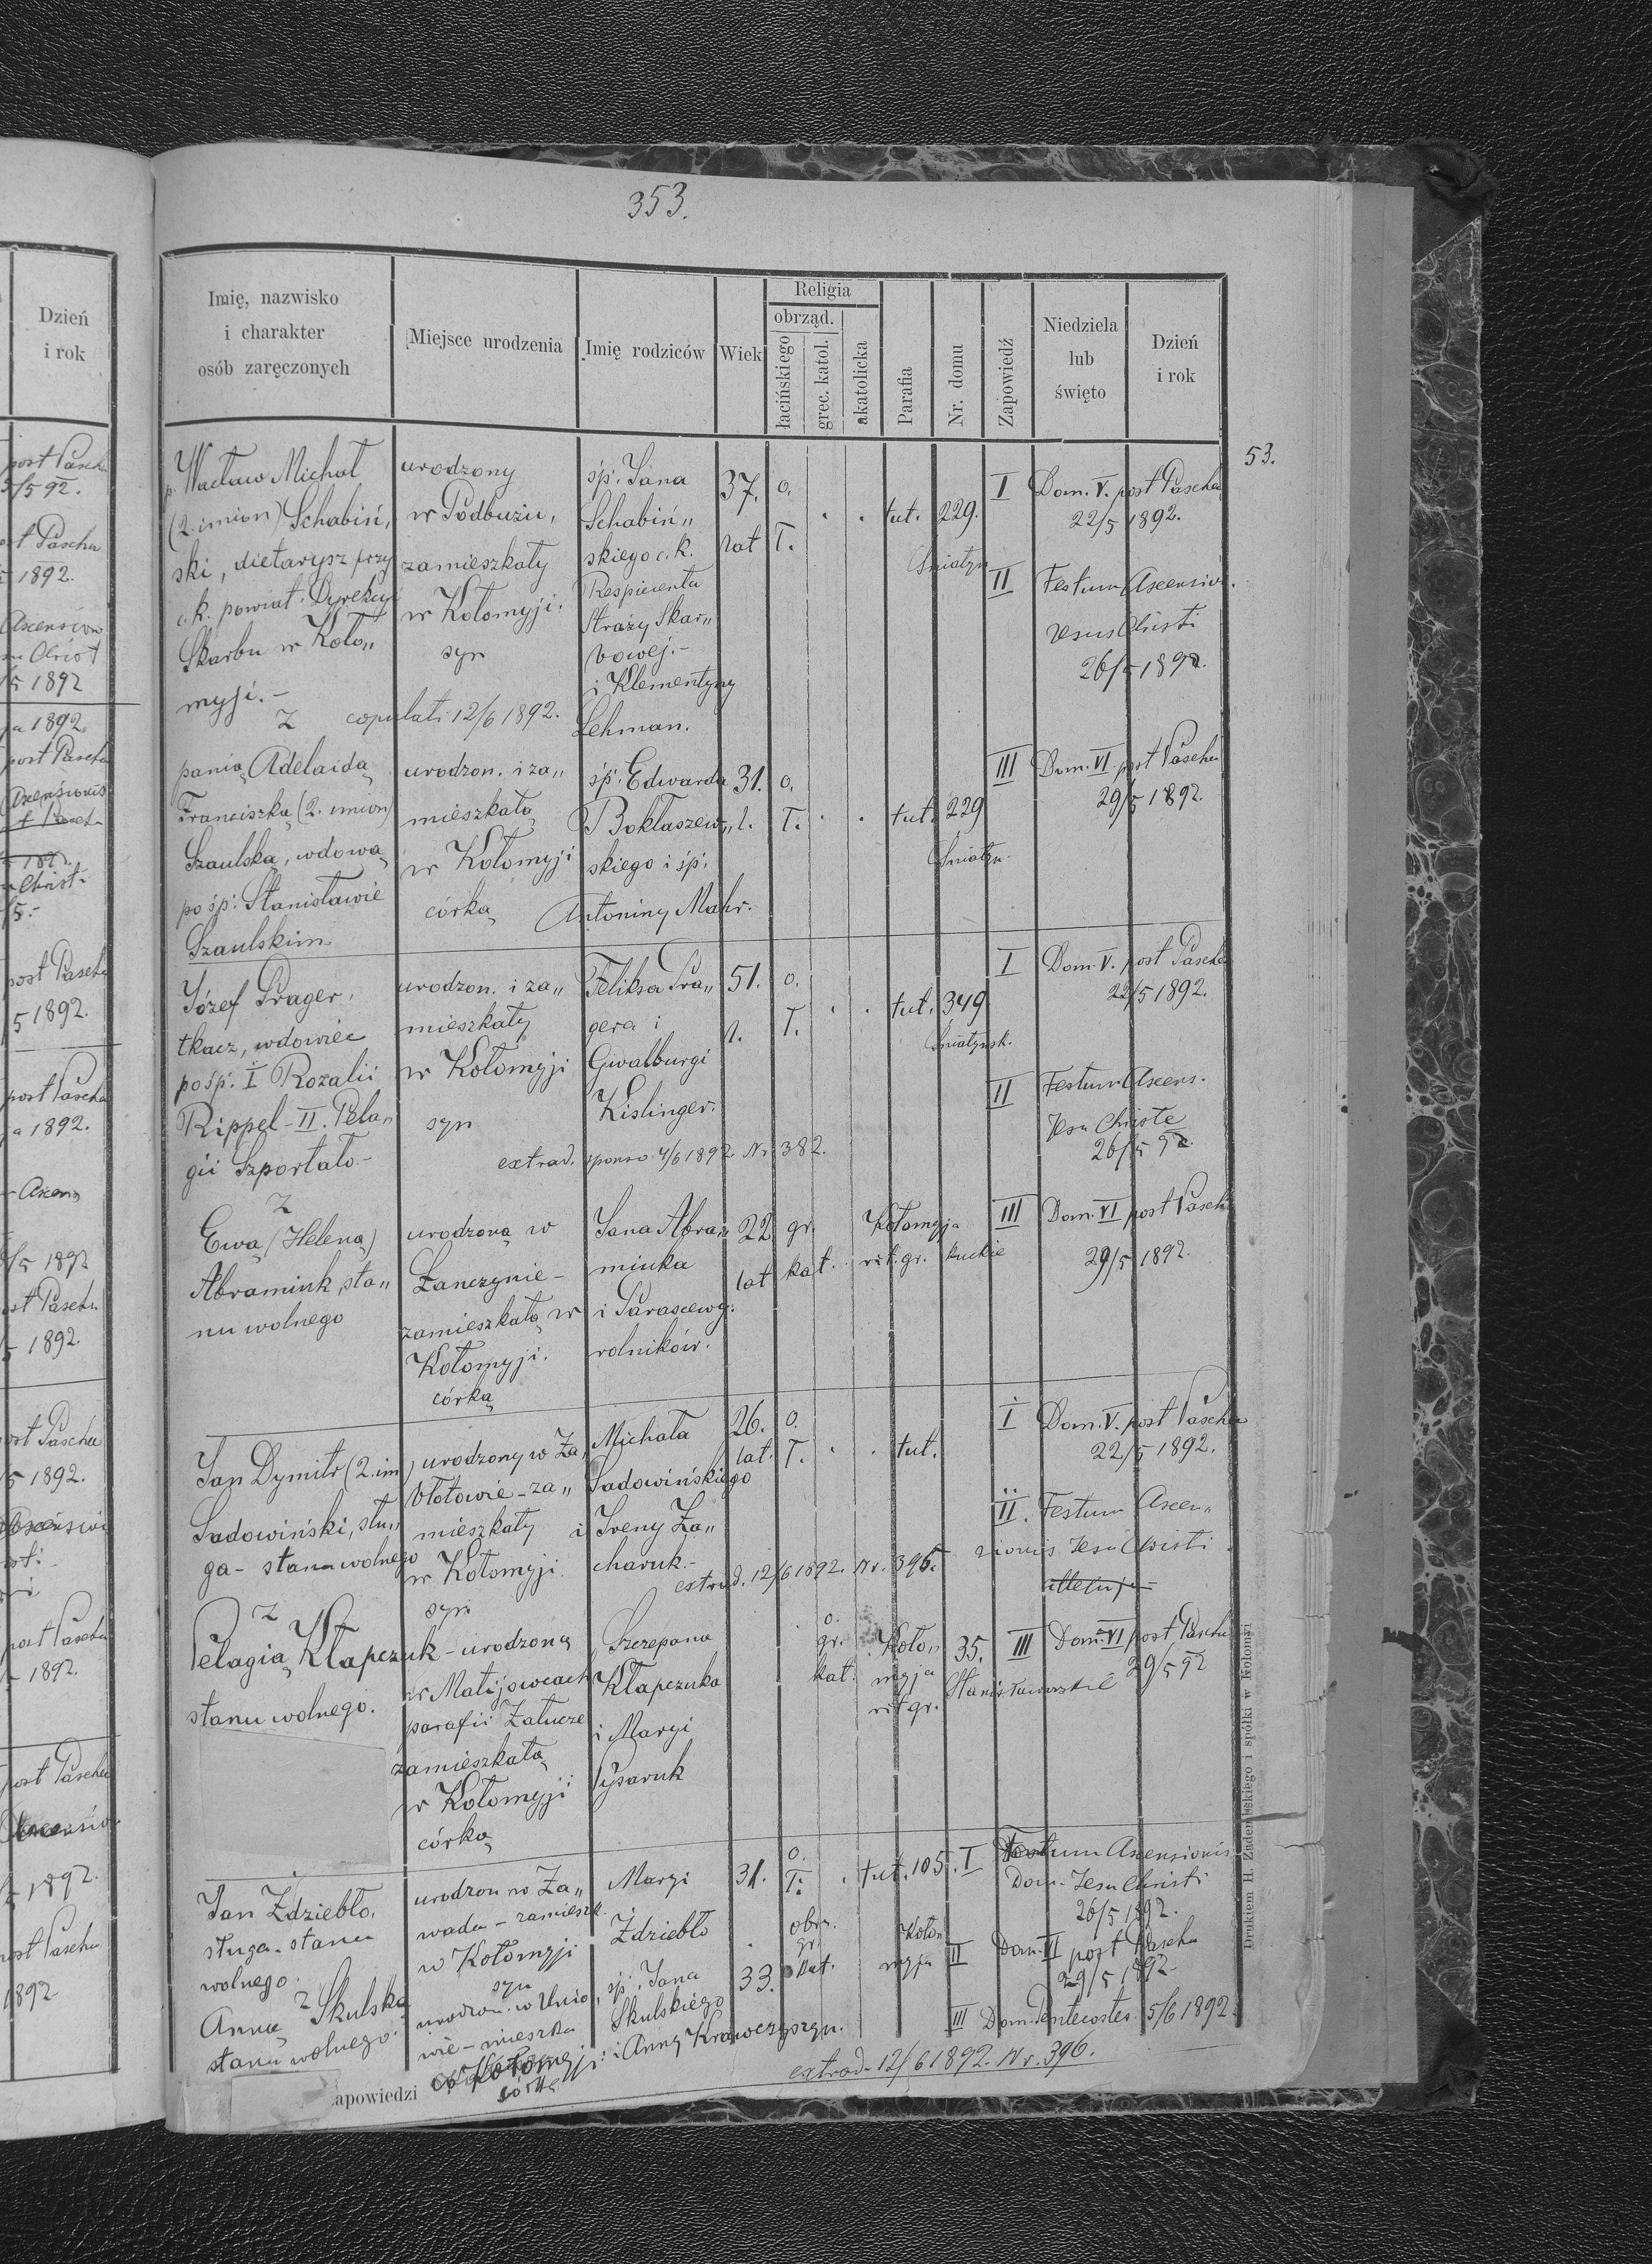 353.
53.
Dzień
i rok
Imię, nazwisko
i charakter
osób zaręczonych
Miejsce urodzenia
Imię rodziców
Wiek
Religia
obrząd.
łacińskiego
grec. katol.
akatolicka
Parafia
Nr. domu
Zapowiedź
Niedziela
lub
święto
Dzień
i rok
p. Wacław Michał
(2. imion) Schabiń,
ski, dietarysz przy
c.k. powiat. Dyrekcyi
Skarbu w Koło„
myji.-
urodzony
w Podbużu,
zamieszkały
w Kołomyji.
syn
śp. Jana
Schabiń„
skiego c. k.
Respicienta
Straży Skar„
bowej.-
i Klementyny
Lehman.
37.
lat
o.
ł.
tut.
229.
Śniatyn
I Dom. V. post Pascha
22/5 1892.
II Festum Ascensio.
Jesus Christi
26/5 1892.
z
copulati 12/6 1892.
panią Adelaidą
Franciszką (2. imion)
Szaulską, wdową
po śp. Stanisławie
Szaulskim
urodzon. i za„
mieszkałą
w Kołomyji
córką
śp. Edwarda
Bokłaszew„
skiego i śp.
Antoniny Mahr.
31.
l.
o.
ł.
tut.
229
Śniatyn.
III Dom. VI. post Pascha
29/5 1892.
Józef Prager,
tkacz, wdowiec
po śp. I Rozalii
Rippel - II. Pela„
gii Szportało-
urodzon. i za„
mieszkały
w Kołomyji
syn
Feliksa Pra„
gera i
Gwalburgi
Kislinger.
51.
l.
o.
ł.
tut.
349
Śniatynsk.
I Dom. V. post Pascha
22/5 1892.
II Festum Ascens.
Jesu Christe
26/5 92.
extrad. sponso 4/6 1892. Nr. 382.
z
Ewą (Heleną)
Abramiuk, sta„
nu wolnego
urodzoną w
Łanczynie-
zamieszkałą w
Kołomyji.
córką
Jana Abra„
miuka
i Parascewy.
rolników.
22
lat
gr.
kat.
Kołomyja
rit. gr.
kuckie
III Dom. VI post Pascha
29/5 1892.
Jan Dymitr (2. im)
Sadowiński, słu„
ga- stanu wolnego
urodzony w Za„
błotowie - za„
mieszkały
w Kołomyji.
syn
Michała
Sadowińskiego
i Ireny Za„
charuk.-
26.
lat.
o.
ł.
tut.
I Dom. V. post Pascha
22/5 1892.
II. Festum Ascen„
sionis Jesu Christi
extrad. 12/6 1892. Nr. 395.
z
Pelagią Kłapczuk -
stanu wolnego.
urodzoną
w Matijowcach
parafii Załucze
zamieszkałą
w Kołomyji
córką
Szczepana
Kłapczuka
i Maryi
Pysaruk
o.
gr.
kat.
Koło„
myja
rit gr.
35.
Stanisławowskie
III Dom. VI post Pascha
29/5 92
Jan Zdziebło,
sługa - stanu
wolnego.
urodzon w Za„
wada - zamieszk.
w Kołomyji
syn
Maryi
Zdziebło
31.
o.
ł.
tut.
105.
I Festum Ascensionis
Dom. Jesu Christi
26/5 1892.
z
Anną Skulską
stanu wolnego.
urodzon. w Unio„
wie - mieszka
w Kołomyji.
córką
śp. Jana
Skulskiego
i Anny Krawczyszyn.
33.
obrz.
gr.
kat.
Koło„
myja
II Dom. VI post Pascha
29/5 1892
III Dom. Pentecostes 5/6 1892.
extrad. 12/6 1892. Nr. 396.
apowiedzi
Drukiem H. Zadembskiego i spółki w Kołomyi